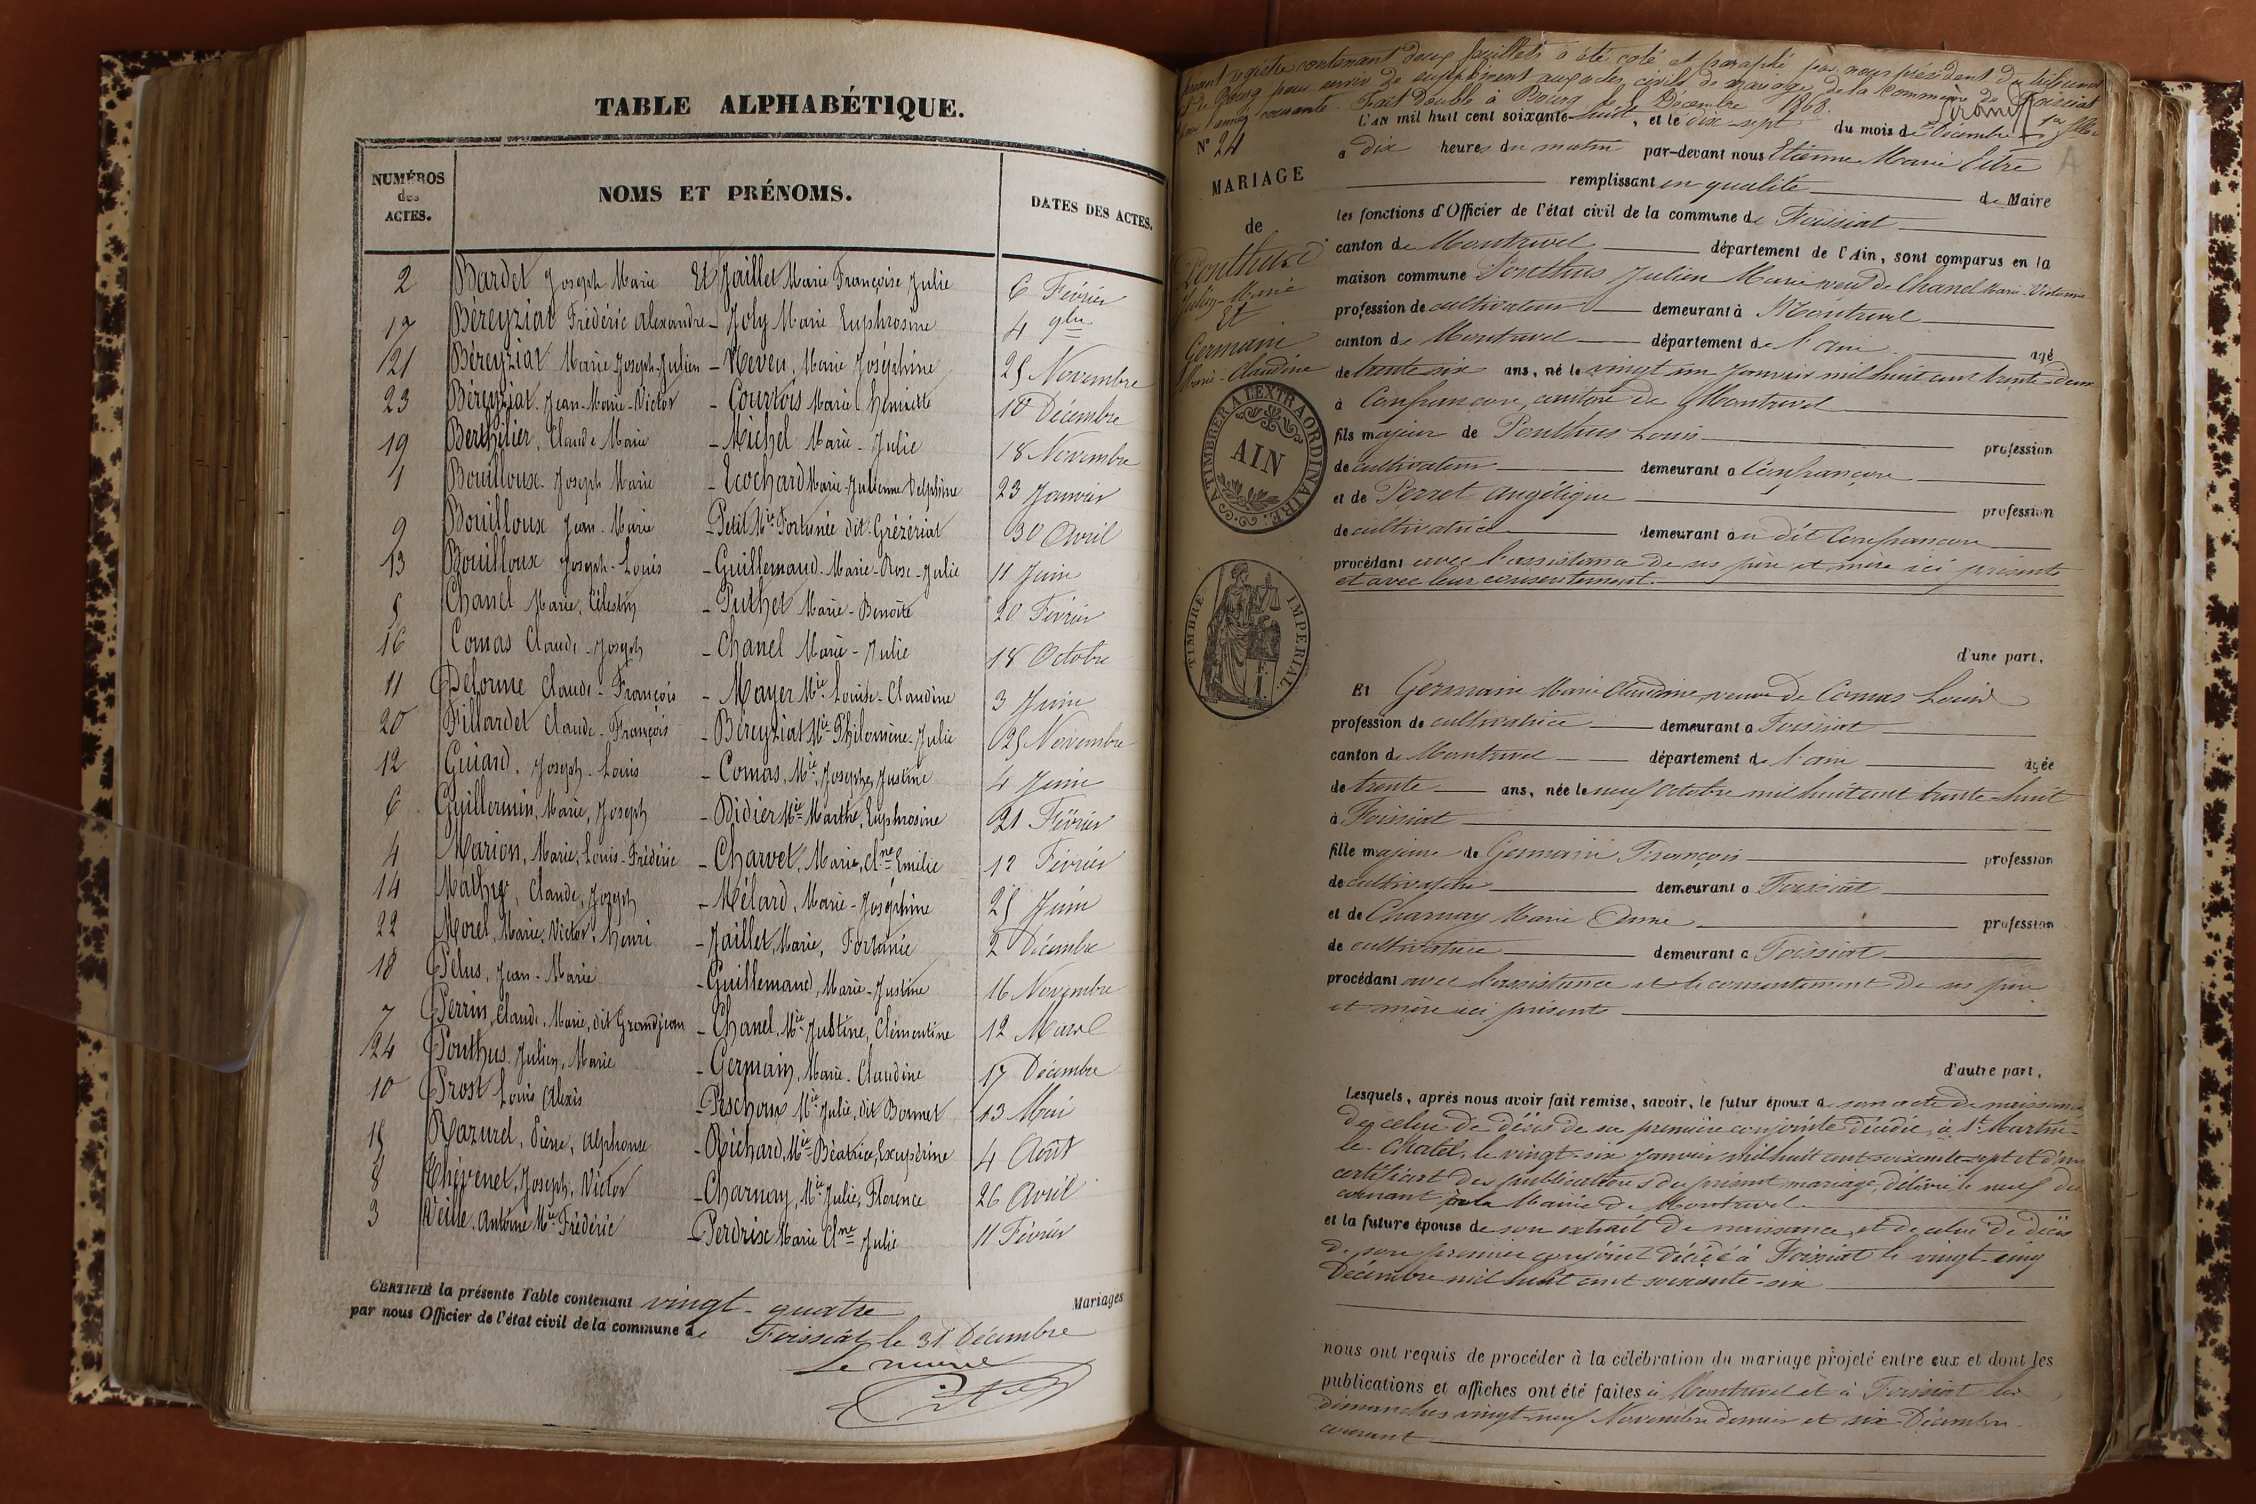 TABLE ALPHABÉTIQUE.
NUMÉROS des ACTES.
NOMS ET PRÉNOMS.
DATES DES ACTES.
2 Bardet Joseph Marie Et Jaillet Marie Françoise Julie 6 Février
17 Béreyziat Frédéric Alexandre - Joly Marie Euphrosine 4 9bre
21 Béreyziat Marie Joseph Julien - Neveu, Marie Joséphine 25 Novembre
23 Béreyziat Jean-Marie-Victor - Courtois Marie Henriette 10 Décembre
19 Berthilier, Claude Marie - Michel Marie-Julie 18 Novembre
1 Bouilloux Joseph Marie - Ecochard Marie-Julienne Delphine 23 Janvier
9 Bouilloux Jean-Marie - Petit Mie Fortunée dit Grézériat 30 Avril
13 Bouilloux Joseph-Louis - Guillemaud-Marie-Rose-Julie 11 Juin
5 Chanel Marie, Célestin - Puthet Marie-Benoite 20 Février
16 Comas Claude-Joseph - Chanel Marie-Julie 18 Octobre
11 Delorme Claude-François - Mayer Mie Louise-Claudine 3 Juin
20 Fillardet Claude-François - Béreyziat Mie Philomène-Julie 25 Novembre
12 Guiard, Joseph-Louis - Comas, Mie Josephe, Justine 4 Juin
6 Guillermin, Marie, Joseph - Didier Mie Marthe, Euphrosine 21 Février
4 Marion, Marie, Louis-Frédéric - Charvet, Marie, Clne Emilie 12 Février
14 Mathy, Claude, Joseph - Mélard, Marie-Joséphine 25 Juin
22 Morel, Marie, Victor, Henri - Jaillet, Marie, Fortunée 2 Décembre
18 Pélus, Jean-Marie - Guillemaud, Marie-Justine 16 Novembre
7 Perrin, Claude, Marie, dit Grandjean - Chanel, Mie Justine, Clémentine 12 Mars
24 Ponthus Julien, Marie - Germain, Marie-Claudine 17 Décembre
10 Prost Louis Alexis - Peschoux Mie Julie, dit Bonnet 13 Mai
15 Razurel, Pierre, Alphonse - Richard, Mie Béatrice, Exupérine 4 Août
8 Thévenet, Joseph, Victor - Charnay, Mie Julie, Florence 26 Avril
3 Veille, Antoine Mie Frédéric - Perdrix Marie Clne Julie 11 Février
CERTIFIÉ la présente Table contenant vingt-quatre Mariages
par nous Officier de l'état civil de la commune de Foissiat, le 31 Décembre
Le maire
présent registre contenant deux feuillets a été coté et paraphé par nous président du tribunal
de Bourg pour servir de supplément aux actes civils de mariage de la commune de Foissiat
pour l'année courante. Fait double à Bourg le Décembre 1868.
1er feuillet
N° 24
MARIAGE
de
Ponthus
Julien-Marie
Et
Germain
Marie-Claudine
A TIMBRER A L'EXTRAORDINAIRE.
AIN
TIMBRE IMPERIAL.
L'AN mil huit cent soixante-huit, et le dix-sept du mois de Décembre
à dix heures du matin par-devant nous Etienne Marie
remplissant en qualité de Maire
les fonctions d'Officier de l'état civil de la commune de Foissiat
canton de Montrevel département de l'Ain, sont comparus en la
maison commune Ponthus Julien Marie veuf de Chanel Marie-Victorine
profession de cultivateur demeurant à Montrevel
canton de Montrevel département de l'ain âgé
de trente six ans, né le vingt un Janvier mil huit cent trente-deux
à Confrançon, canton de Montrevel
fils majeur de Ponthus Louis profession
de cultivateur demeurant à Confrançon
et de Perret Angélique profession
de cultivatrice demeurant au dit Confrançon
procédant avec l'assistance de ses père et mère ici présents
et avec leur consentement.
d'une part,
Et Germain Marie Claudine, veuve de Comas Louis
profession de cultivatrice demeurant à Foissiat
canton de Montrevel département de l'ain âgée
de trente ans, née le neuf Octobre mil huit cent trente-huit
à Foissiat
fille majeure de Germain François profession
de cultivateur demeurant à Foissiat
et de Charnay Marie Anne profession
de cultivatrice demeurant à Foissiat
procédant avec l'assistance et le consentement de ses père
et mère ici présents
d'autre part,
Lesquels, après nous avoir fait remise, savoir, le futur époux de son acte de naissance
de celui de décès de sa première conjointe décédée, à St Martin-
le-Chatel, le vingt-six Janvier mil huit cent soixante-sept et d'un
certificat des publications du présent mariage, délivré le neuf du
courant par la Mairie de Montrevel
et la future épouse de son extrait de naissance, et de celui de décès
de son premier conjoint décédé à Foissiat le vingt-cinq
Décembre mil huit cent soixante-six
nous ont requis de procéder à la célébration du mariage projeté entre eux et dont les
publications et affiches ont été faites à Montrevel et à Foissiat les
dimanches vingt-neuf Novembre dernier et six Décembre
courant